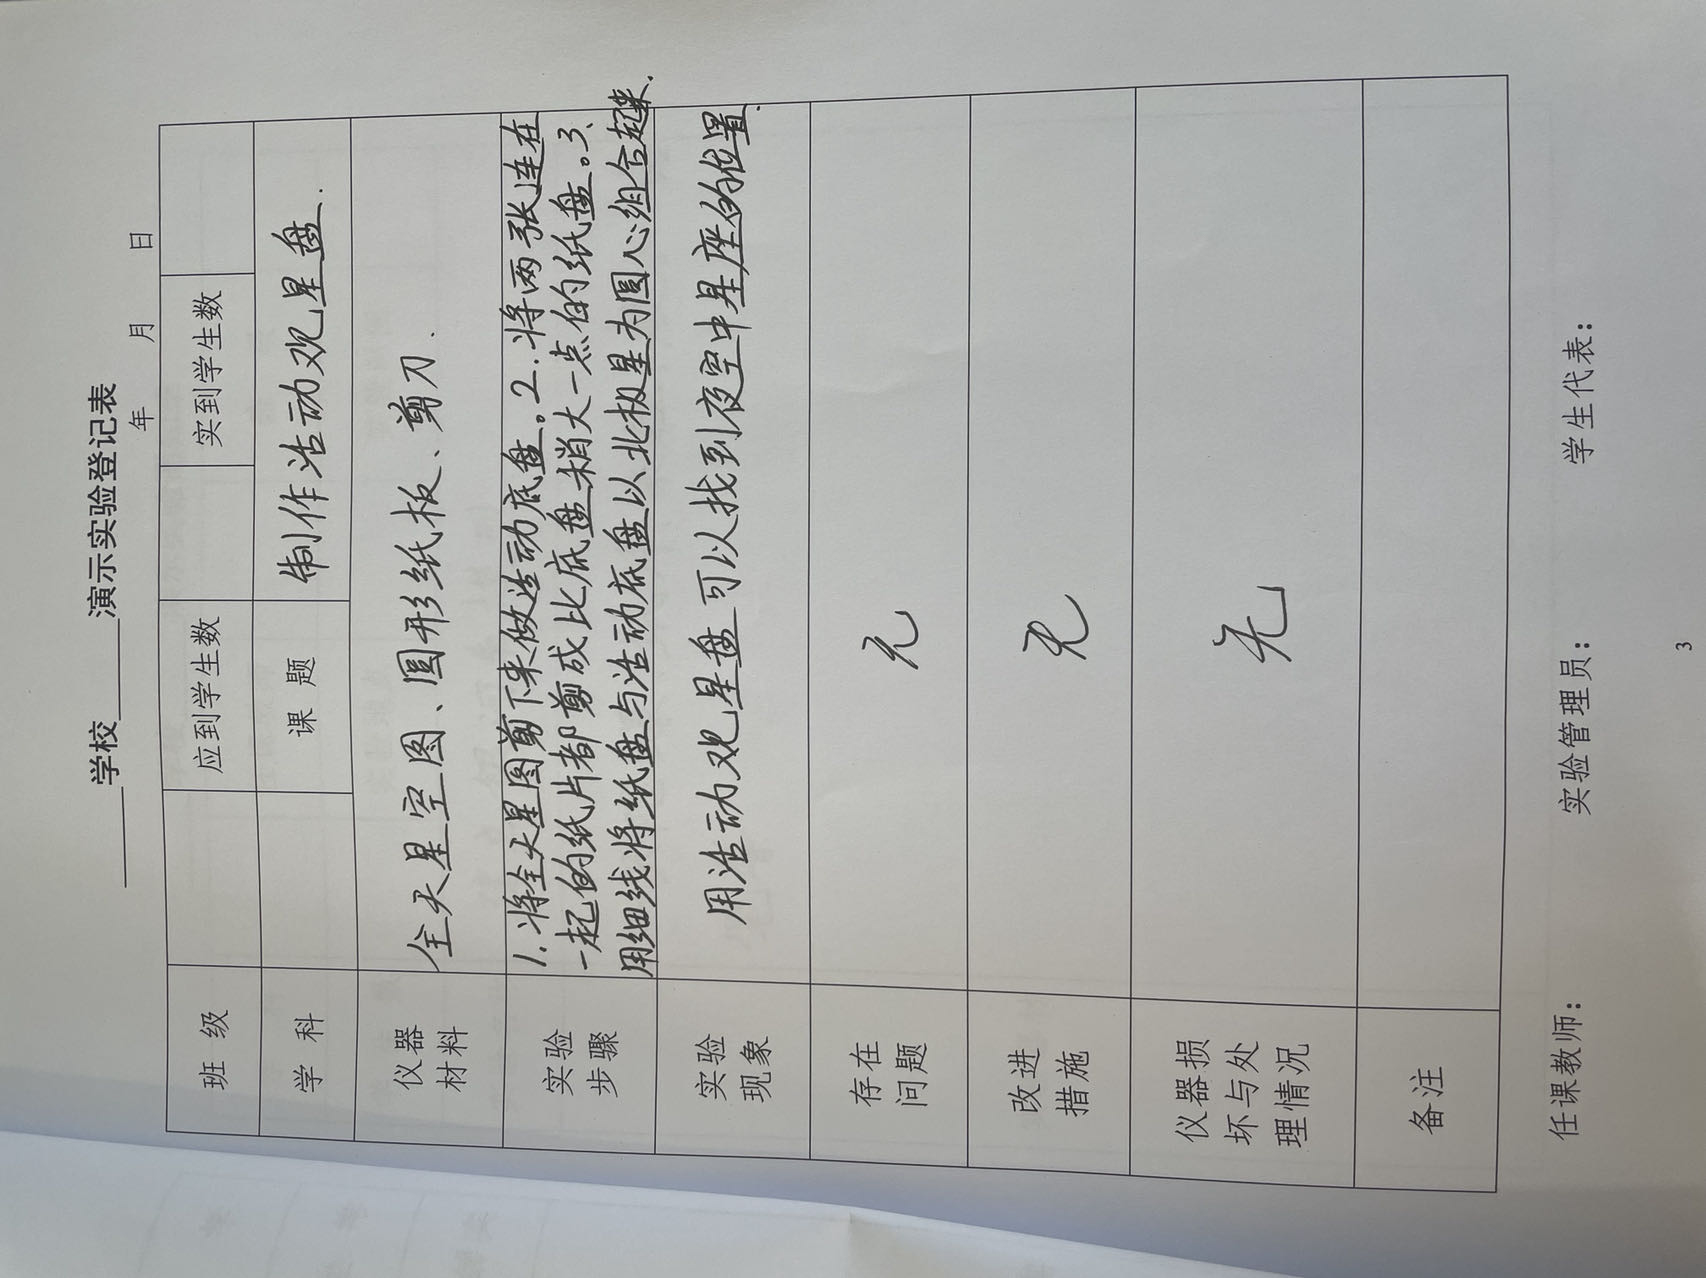 ______学校______演示实验登记表
年 月 日
班 级 应到学生数 实到学生数
学 科 课 题 制作活动观星盘.
仪器
材料
全天星空图、圆形纸板、剪刀.
实验
步骤
1.将全天星图剪下来做活动底盘。2.将两张连在
一起的纸片都剪成比底盘稍大一点的纸盘。3、
用细线将纸盘与活动底盘以北极星为圆心组合起来.
实验
现象
用活动观星盘可以找到夜空中星座的位置.
存在
问题
无
改进
措施
无
仪器损
坏与处
理情况
无
备注
任课教师: 实验管理员: 学生代表:
3